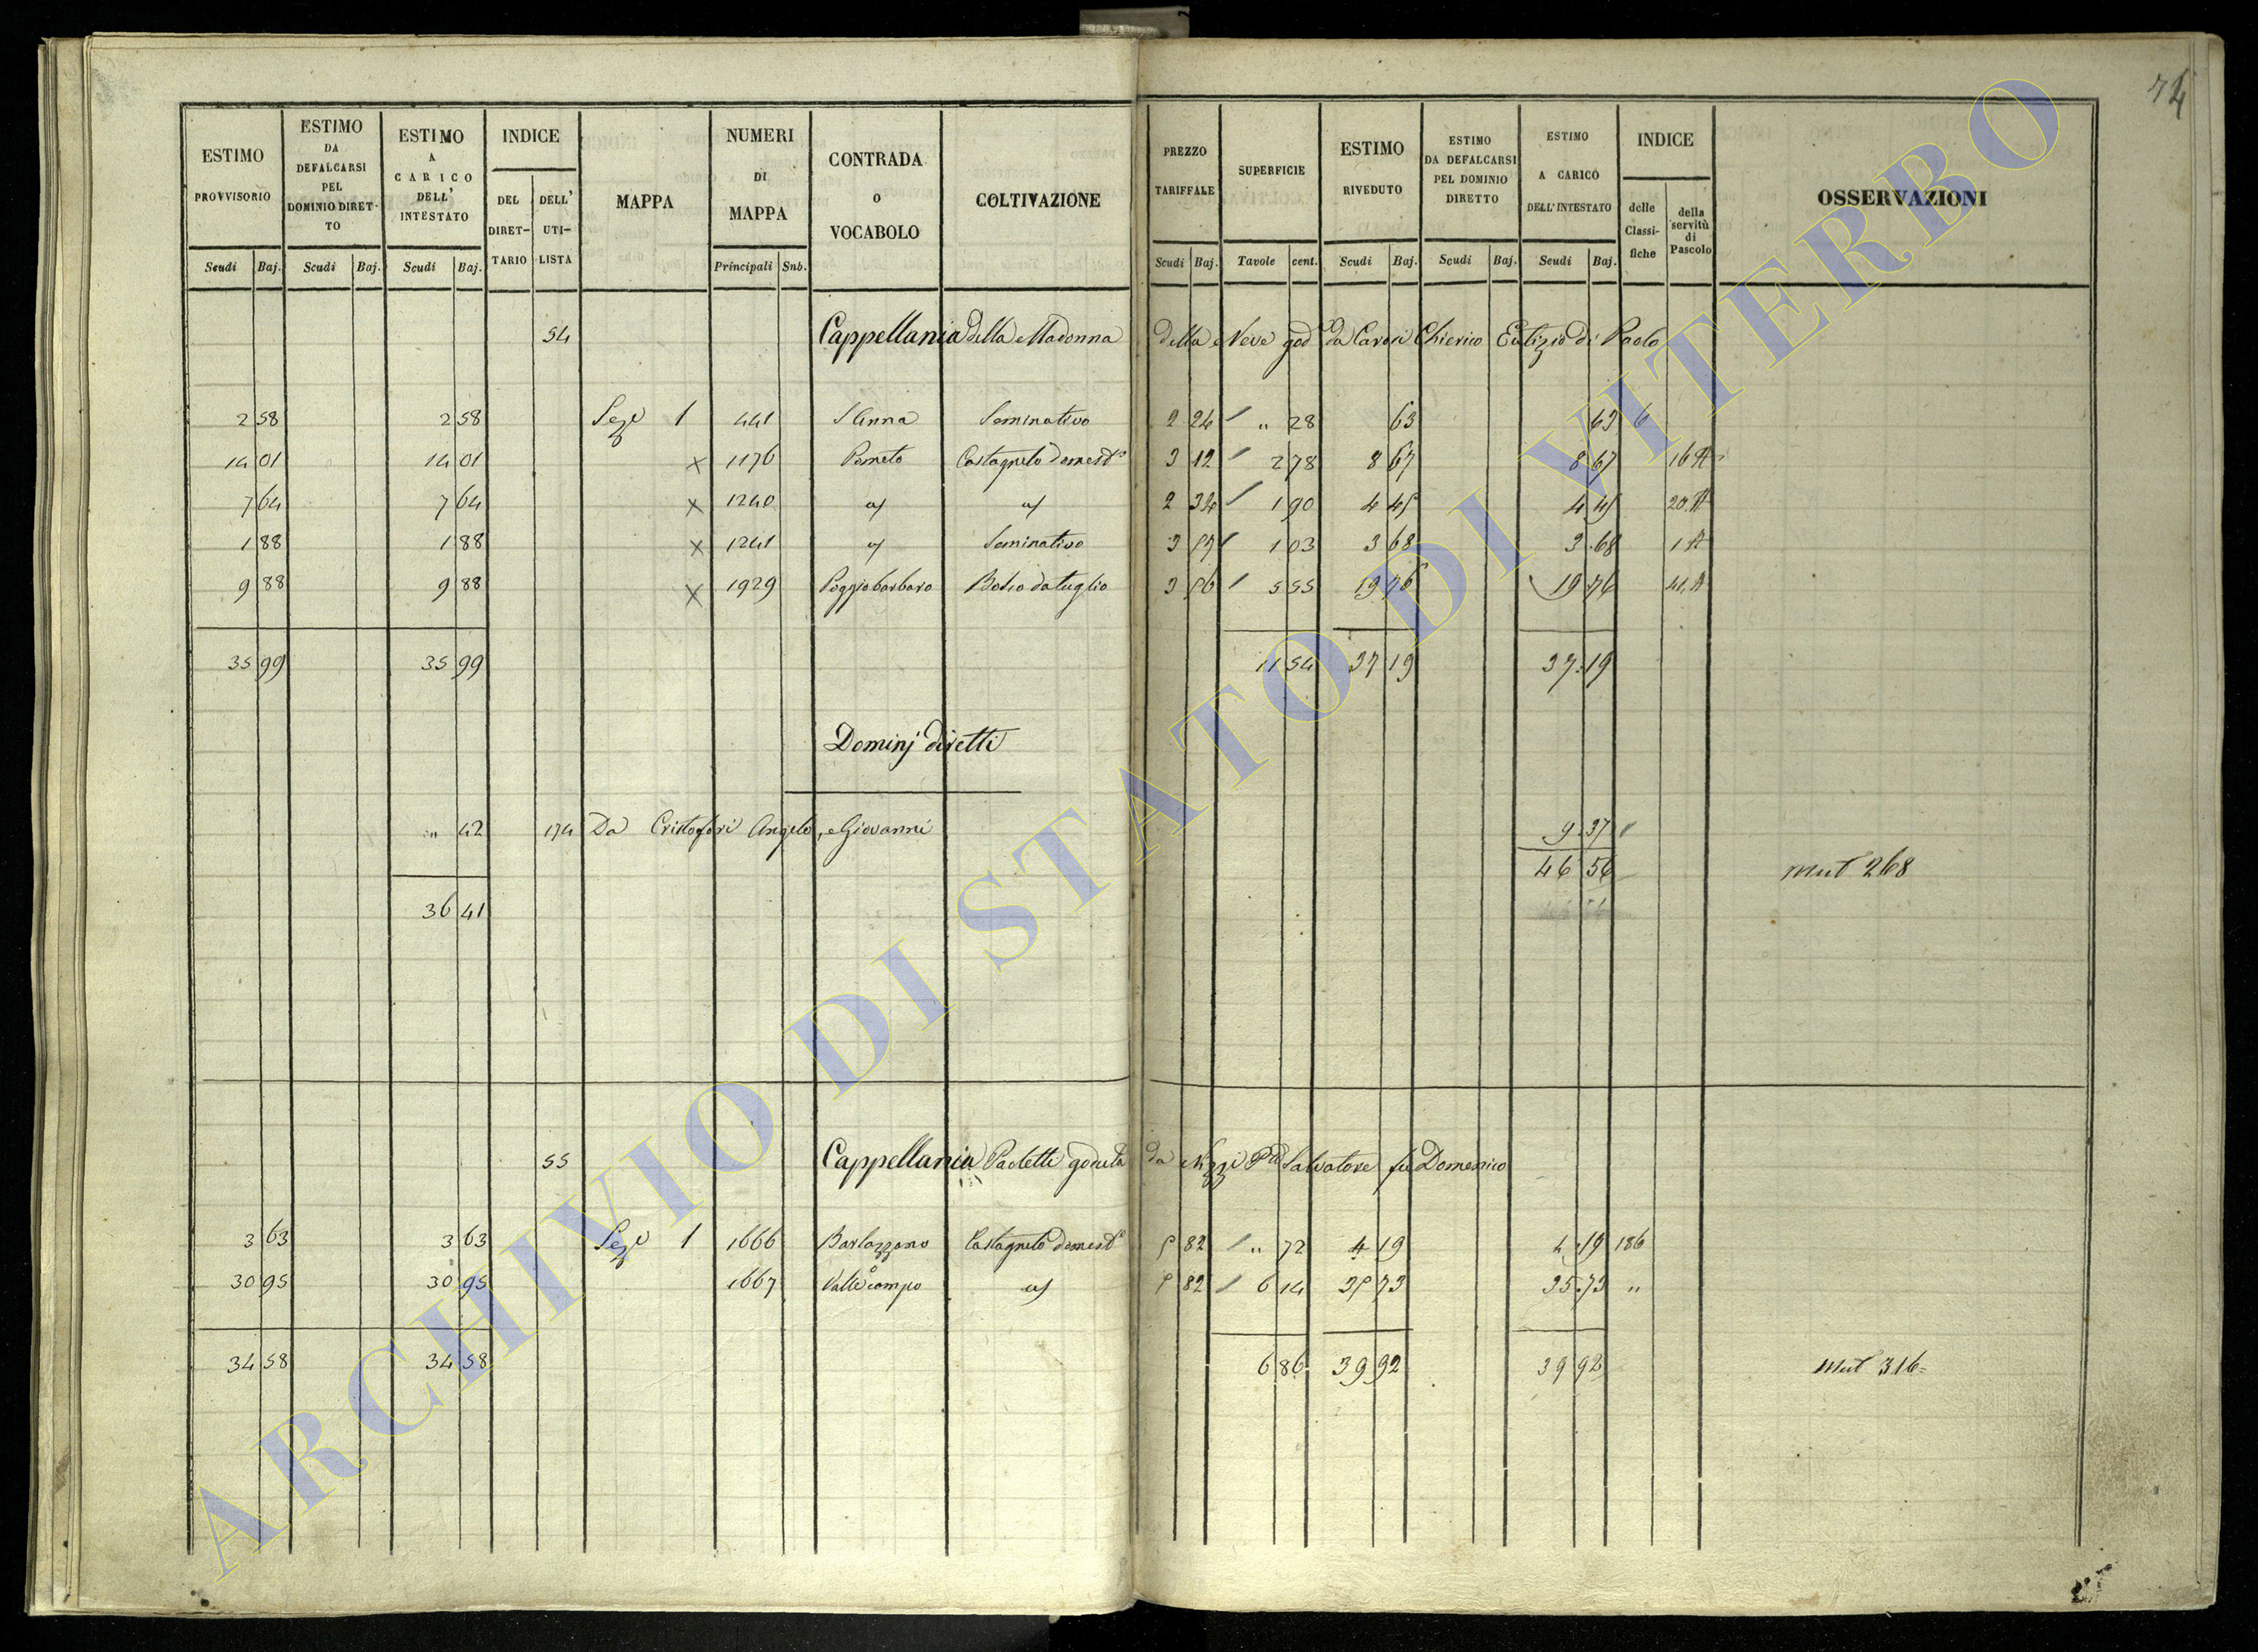 74
ESTIMO PROVVISORIO Scudi Baj.
ESTIMO DA DEFALCARSI PEL DOMINIO DIRET-TO Scudi Baj.
ESTIMO A CARICO DELL' INTESTATO Scudi Baj.
INDICE DEL DIRET-TARIO DELL' UTI-LISTA
MAPPA
NUMERI DI MAPPA Principali Snb.
CONTRADA O VOCABOLO
COLTIVAZIONE
PREZZO TARIFFALE Scudi Baj.
SUPERFICIE Tavole cent.
ESTIMO RIVEDUTO Scudi Baj.
ESTIMO DA DEFALCARSI PEL DOMINIO DIRETTO Scudi Baj.
ESTIMO A CARICO DELL'INTESTATO Scudi Baj.
INDICE delle Classi-fiche della servitù di Pascolo
OSSERVAZIONI
54 Cappellania della Madonna della Neve god da Carosi Chierico Eutizio di Paolo
2 58 2 58 Seze 1 441 S Anna Seminativo 2 24 " 28 63 63 6
14 01 14 01 x 1176 Pometo Castagneto domest° 3 12 2 78 8 67 8 67 16 A
7 64 7 64 x 1240 2 34 1 90 4 45 4 45 20. A
1 88 1 88 x 1241 Seminativo 3 57 1 03 3 68 3.68 1 A
9 88 9 88 x 1929 Poggiobarbaro Bosco da taglio 3 56 5 55 19 76 19 76 41. A
35 99 35 99 11 54 37 19 37.19
Dominj diretti
" 42 174 Da Cristofori Angelo, e Giovanni 9.37
46 56 mut 268
36 41
55 Cappellania Paoletti goduta da Nizzi Salvatore fu Domenico
3 63 3 63 Seze 1 1666 Barlozzano Castagneto domest° 5 82 " 72 4 19 4.19 186
30 95 30 95 1667 Valle campo 5 82 6 14 35 73 35.73 "
34 58 34 58 6 86 39 92 39 92 Mut 316=
ARCHIVIO DI STATO DI VITERBO